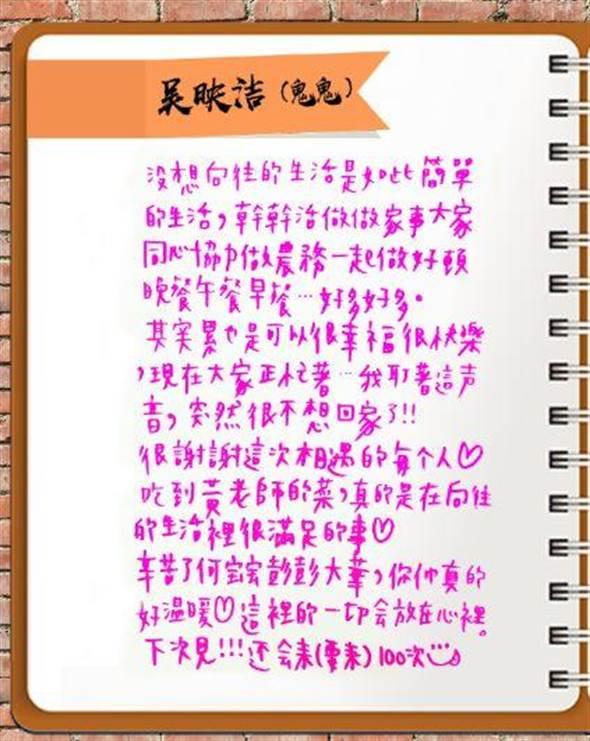 吴映洁（鬼鬼）
没想向往的生活是如此簡單
的生活，幹幹活做做家事大家
同心協力做農務一起做好頓
晚餐午餐早餐…好多好多。
其実累也是可以很幸福很快樂
，現在大家正忙著…我听著這声
音，突然很不想回家了!!
很謝謝這次相遇的每个人♡
吃到黃老師的菜，真的是在向往
的生活裡很滿足的事♡
辛苦了何宝宝彭彭大華，你们真的
好温暖♡這裡的一切会放在心裡。
下次見!!!还会来(要来)100次